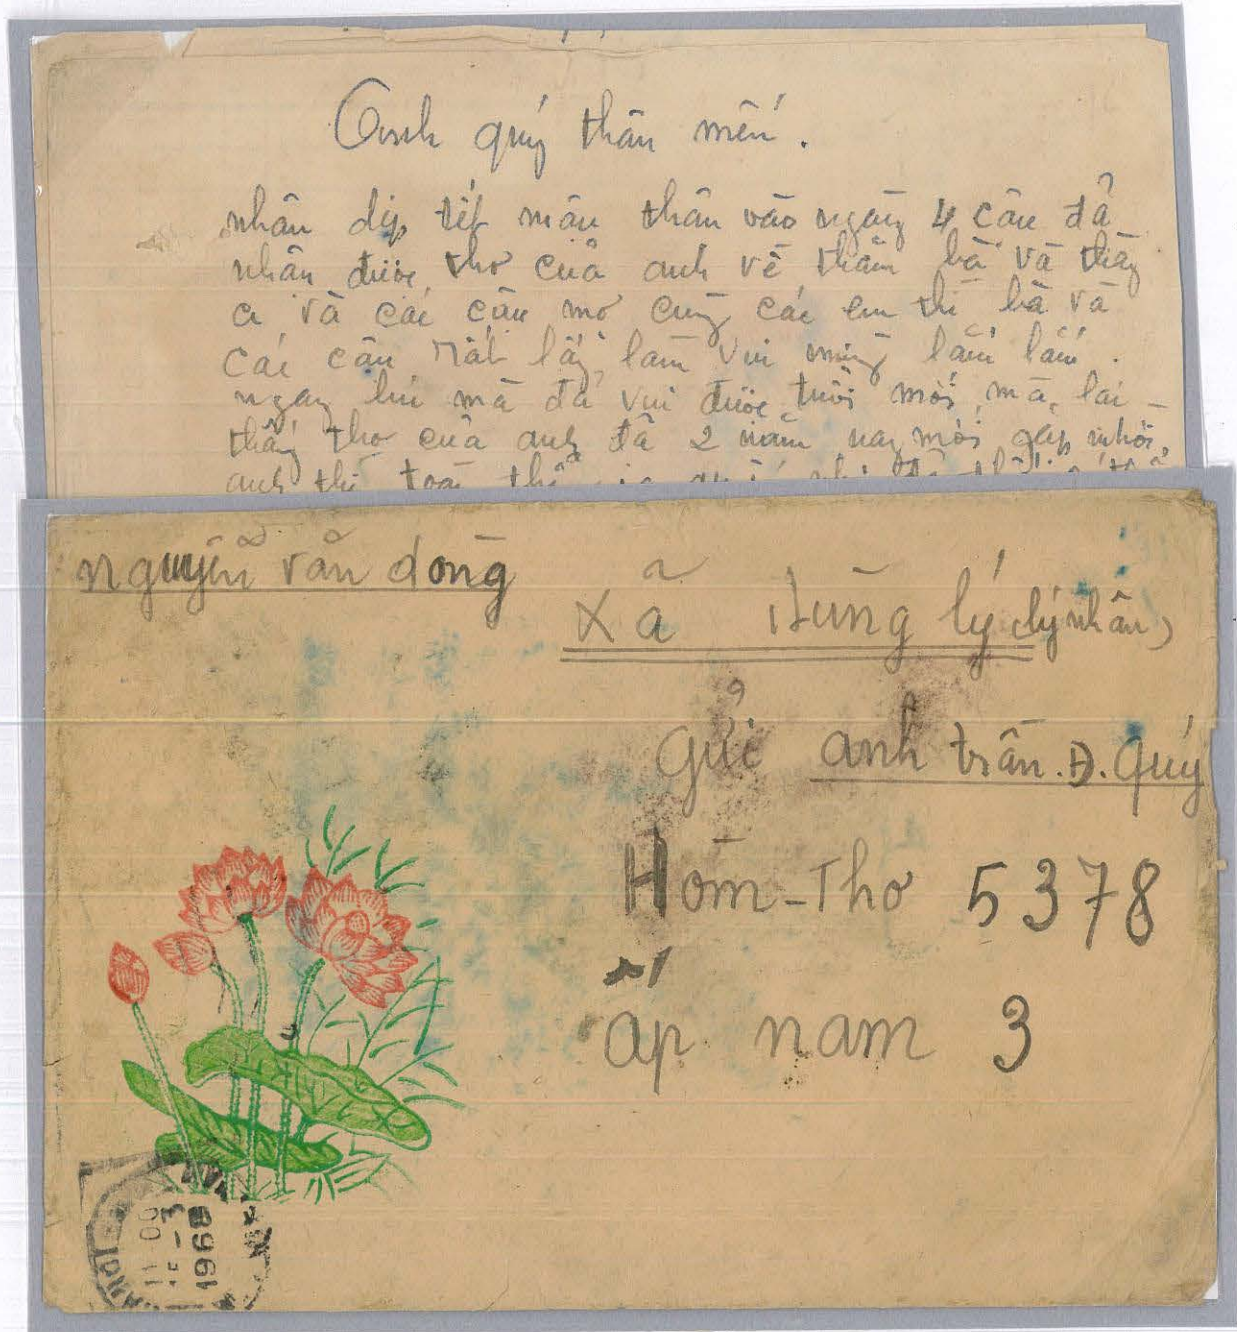 Anh quý thân mến.
nhân dịp tết mậu thân vào ngày 4 cậu đả
nhân được thơ của anh về thăm bà và thầy
và các cậu mợ cùng các em thì bà và
các cậu rất lấy làm vui mừng lắm lắm.
ngay lúc mà đã vui được tuổi mới mà lại -
thấy thơ của anh đã 2 năm nay mới gặp
anh thì toàn thể
nguyễn văn dong
xã hùng lý (lý nhân)
gửi anh trần. Đ. Quý
Hòm-Thơ 5378
ấp nam 3
11 00
15 - 3
1968